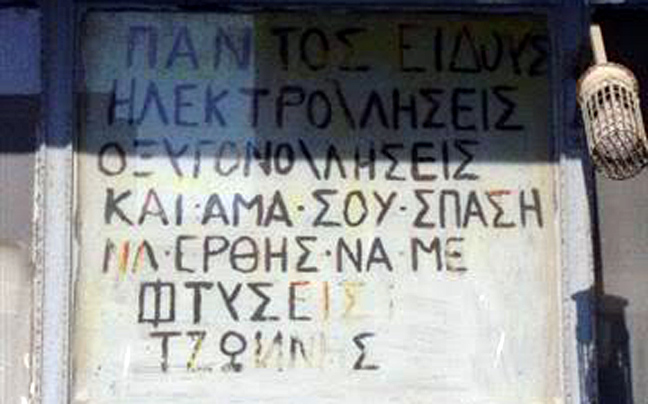 ΠΑΝΤΟΣ ΕΙΔΟΥΣ
ΗΛΕΚΤΡΟ\ΛΗΣΕΙΣ
ΟΞΥΓΟΝΟ\ΛΗΣΕΙΣ
ΚΑΙ·ΑΜΑ·ΣΟΥ·ΣΠΑΣΗ
ΝΑ·ΕΡΘΗΣ·ΝΑ·ΜΕ
ΦΤΥΣΕΙΣ
ΤΖΩΝΝΗΣ